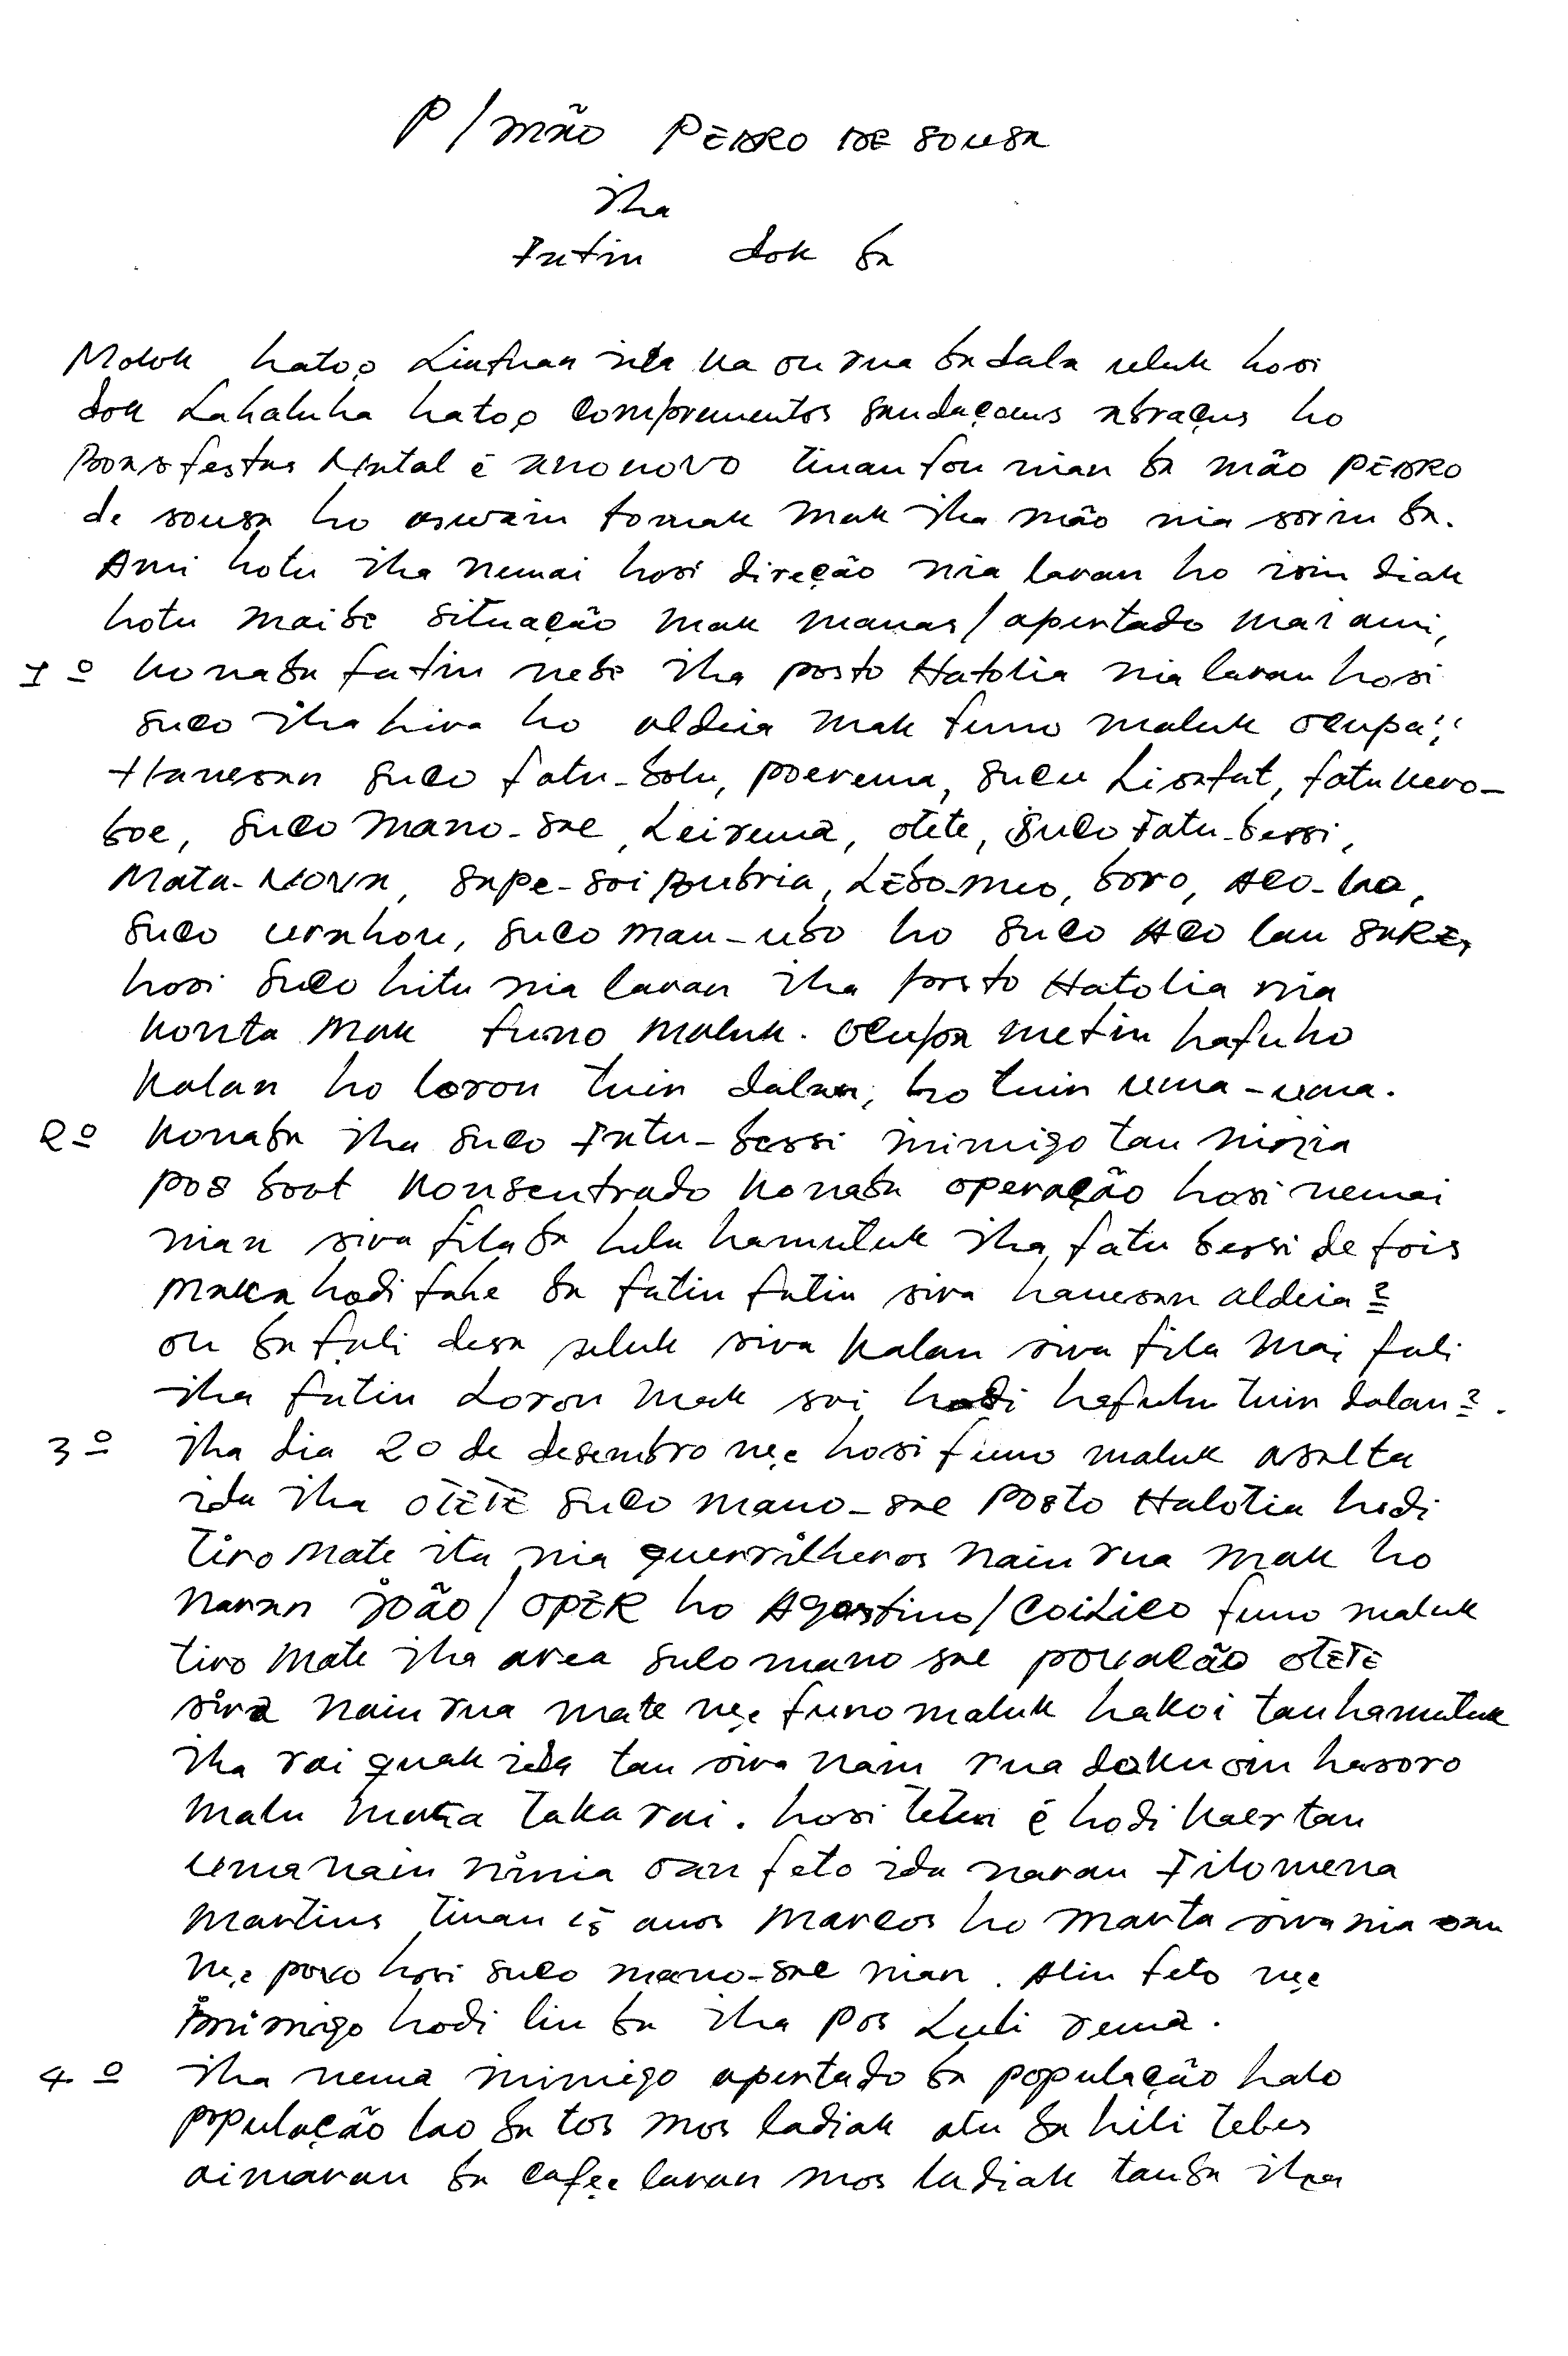 P/mão PEDRO DE sousa
iha
Fatin dok ba
Molok hatoo Liafuan ida ka ou rua ba dala uluk hosi
dok Lahaluha hatoo comprementos saudaçoens abraçus ho
Boas festas Natal é ano novo tinan fou nian ba mão PEDRO
de sousa ho aswain tomak mak iha mão nia sorin ba.
Ami hotu iha nemai hosi direção nia laran ho isin diak
hotu maibe situação mak manas/apertado mai ami,
1º konaba fatin nebe iha posto Hatolia nia laran hosi
suco iha hira ho aldeia mak funo maluk ocupa
Hanesan suco fatu-bolu, poerema, sucu Lisafat, fatukero-
boe, suco mano-sae, Leirema, otete, suco Fatu-bessi,
Mata-Nova, sape-soi Bubria, LEbo-meo, boro, ACO-lao,
suco urahou, suco mau-ubo ho suco ACO lau
hosi suco hitu nia laran iha posto Hatolia nia
konta mak funo maluk. ocupa metin hafuho
kalan ho loron tuir dalan, ho tuir uma-uma.
2º konaba iha suco Fatu-bessi inimigo tau ninia
pos boot konsentrado konaba operação hosi nemai
nian sira fila ba lulu hamutuk iha fatu bessi de fois
maka hodi fahe ba fatin fatin sira hanesan aldeia?
ou ba fali desa seluk sira kalan sira fila mai fali
iha fatin Loron mak soi hodi hafuhu tuir dalan?.
3º iha dia 20 de desembro nee hosi funo maluk asalta
ida iha OTETE suco mano-sae Posto Halotia hodi
Tiro mate ita nia guerrilheros nain rua mak ho
naran João/OPER ho Agostino/COILICO funo maluk
tiro mate iha area suco mano sae povoacão OTETE
sira nain rua mate nee funo maluk hakoi tau hamutuk
iha rai quak ida tau sira nain rua dokusin hasoro
malu maka taka rai. hosi teten é hodi kaer tau
uma nain ninia oan feto ida naran Filomena
Martins tinan anos Marcos ho Marta sira nia oan
nee povo hosi suco mano-sae nian. Alin feto nee
inimigo hodi liu ba iha pos Luli rema.
4º iha nema inimigo apertado ba população halo
população lao ba tos mos ladiak atu ba hili tebes
ai maran ba cafee laran mos ladiak tanba iha